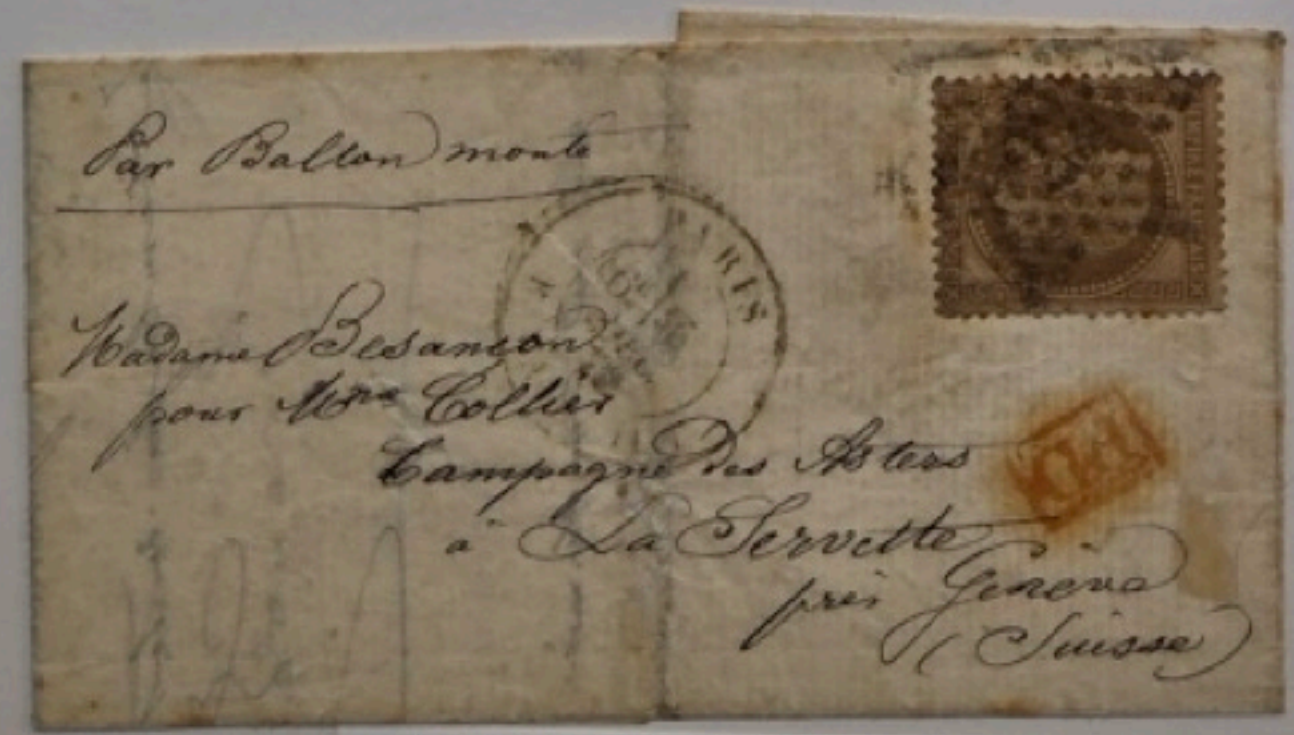 Par Ballon monté
PARIS
Madame Besançon
pour Mme Collier
Campagne des Asters
à La Servette
près Genève
(Suisse)